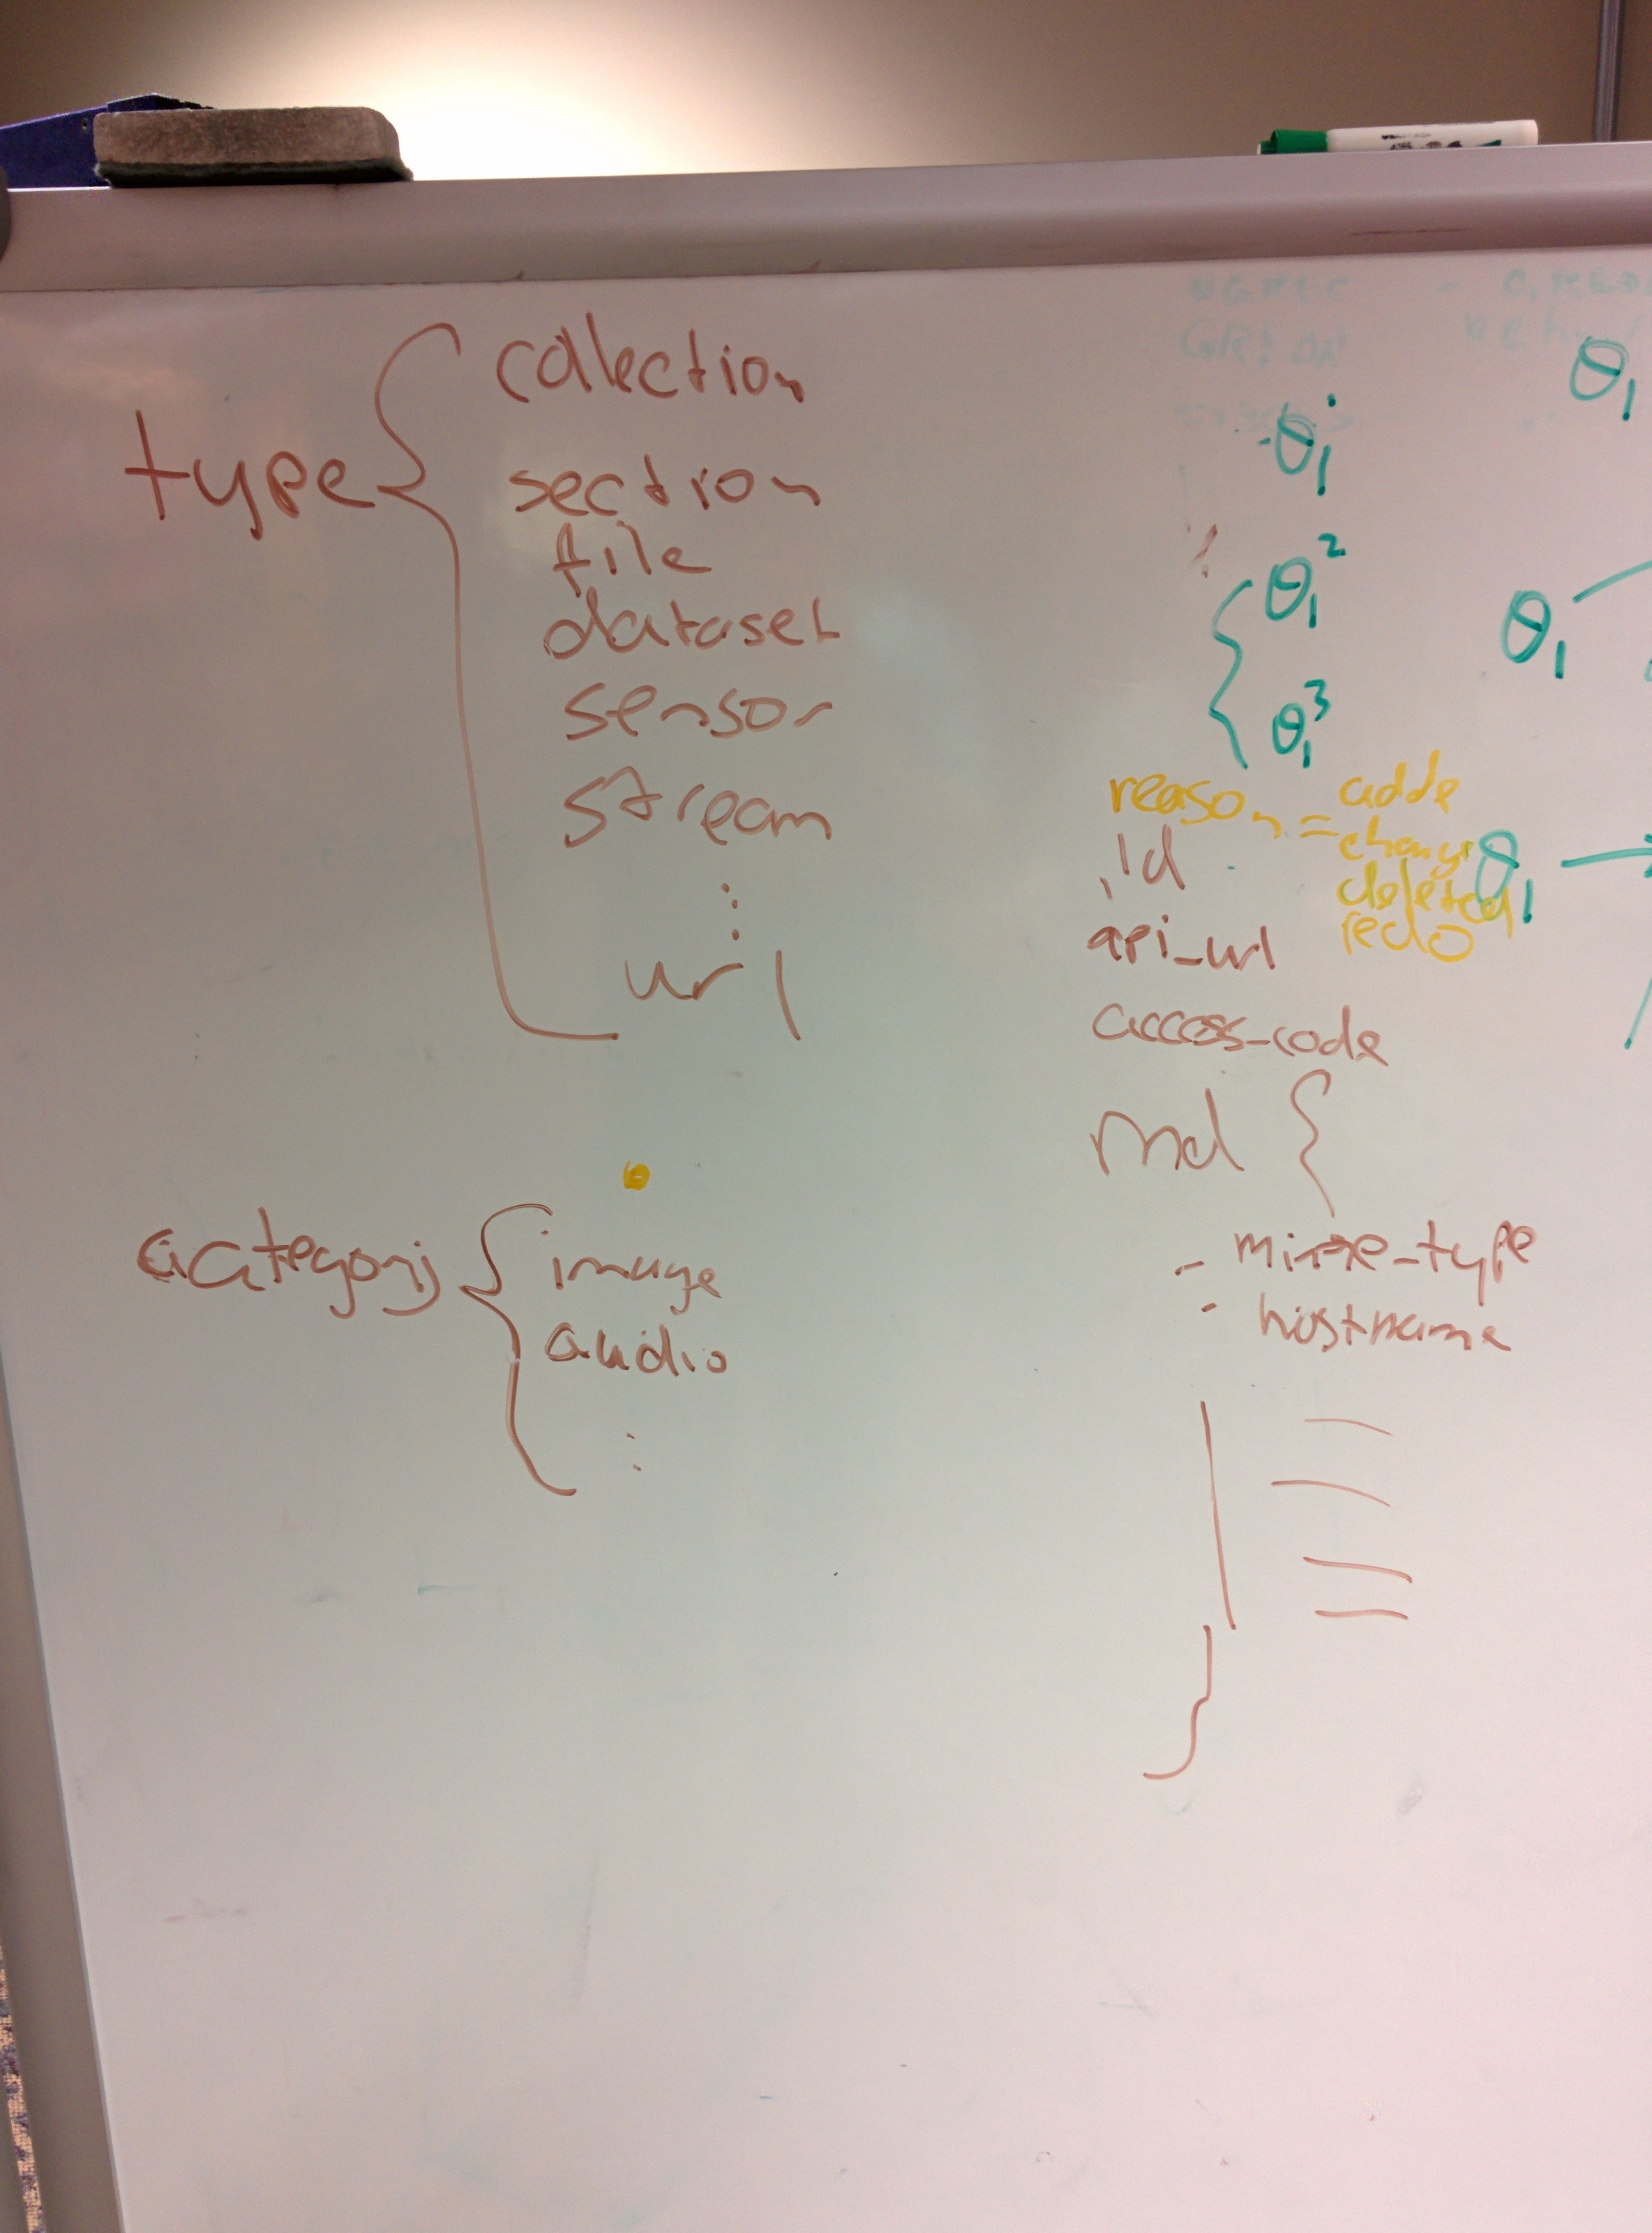 type
collection
section
file
dataset
sensor
stream
⋮
url
category
image
audio
⋮
θ₁
θ₁
θ₁²
θ₁
θ₁³
reason = adde
change
θ₁
deleted
redo
id
api_url
access-code
md {
- mime-type
- hostname
}